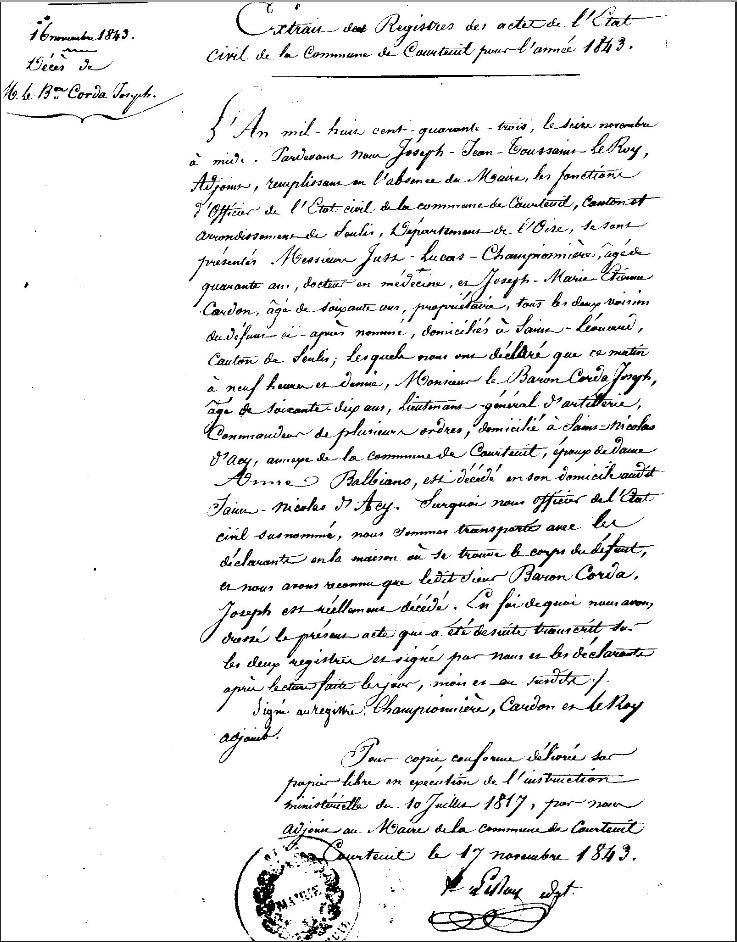 16 novembre 1843.
Décès de
M. le Bon Corda Joseph.
Extrait des Registres des actes de l'État
civil de la Commune de Courteuil pour l'année 1843.
L'An mil-huit cent-quarante-trois, le seize novembre
à midi. Pardevant nous Joseph-Jean-Toussaint le Roy,
Adjoint, remplissant en l'absence du Maire, les fonctions
d'Officier de l'État civil de la commune de Courteuil, canton et
arrondissement de Senlis, Département de l'Oise, se sont
présentés Messieurs Just-Lucas-Championnière, âgé de
quarante ans, docteur en médecine, et Joseph-Marie-Etienne
Cardon, âgé de soixante ans, propriétaire, tous les deux voisins
du défunt ci-après nommé, domiciliés à Saint-Léonard,
Canton de Senlis; lesquels nous ont déclaré que ce matin
à neuf heures et demie, Monsieur le Baron Corda Joseph,
âgé de soixante-dix ans, Lieutenant-général d'artillerie,
Commandeur de plusieurs ordres, domicilié à Saint-Nicolas
d'Acy, annexe de la commune de Courteuil, époux de dame
Anne Balbiano, est décédé en son domicile audit
Saint-Nicolas d'Acy. Surquoi nous officier de l'État
civil susnommé, nous sommes transporté avec les
déclarants en la maison où se trouve le corps du défunt,
et nous avons reconnu que ledit sieur Baron Corda,
Joseph est réellement décédé. En foi de quoi nous avons
dressé le présent acte qui a été desuite transcrit sur
les deux registres et signé par nous et les déclarants
après lecture faite les jour, mois et an susdits ./.
Signé au registre: Championnière, Cardon et le Roy
adjoint.
Pour copie conforme délivrée sur
papier libre en exécution de l'instruction
ministérielle du 10 Juillet 1817, par nous
adjoint au Maire de la commune de Courteuil
Courteuil le 17 novembre 1843.
le Roy adjt.
MAIRIE